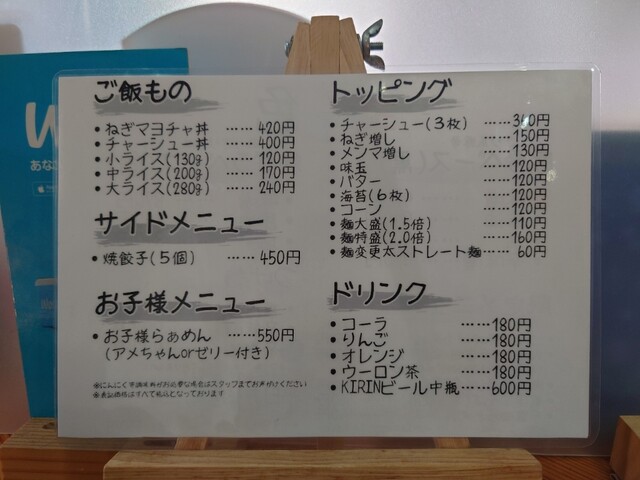 ご飯もの
・ねぎマヨチャ丼 ……420円
・チャーシュー丼 ……400円
・小ライス(130g) ……120円
・中ライス(200g) ……170円
・大ライス(280g) ……240円
サイドメニュー
・焼餃子(5個) ……450円
お子様メニュー
・お子様らぁめん ……550円
(アメちゃんorゼリー付き)
※表記価格はすべて税込となっております
トッピング
・チャーシュー(3枚) ……340円
・ねぎ増し ……150円
・メンマ増し ……130円
・味玉 ……120円
・バター ……120円
・海苔(6枚) ……120円
・コーン ……120円
・麺大盛(1.5倍) ……110円
・麺特盛(2.0倍) ……160円
・麺変更太ストレート麺 ……60円
ドリンク
・コーラ ……180円
・りんご ……180円
・オレンジ ……180円
・ウーロン茶 ……180円
・KIRINビール中瓶……600円